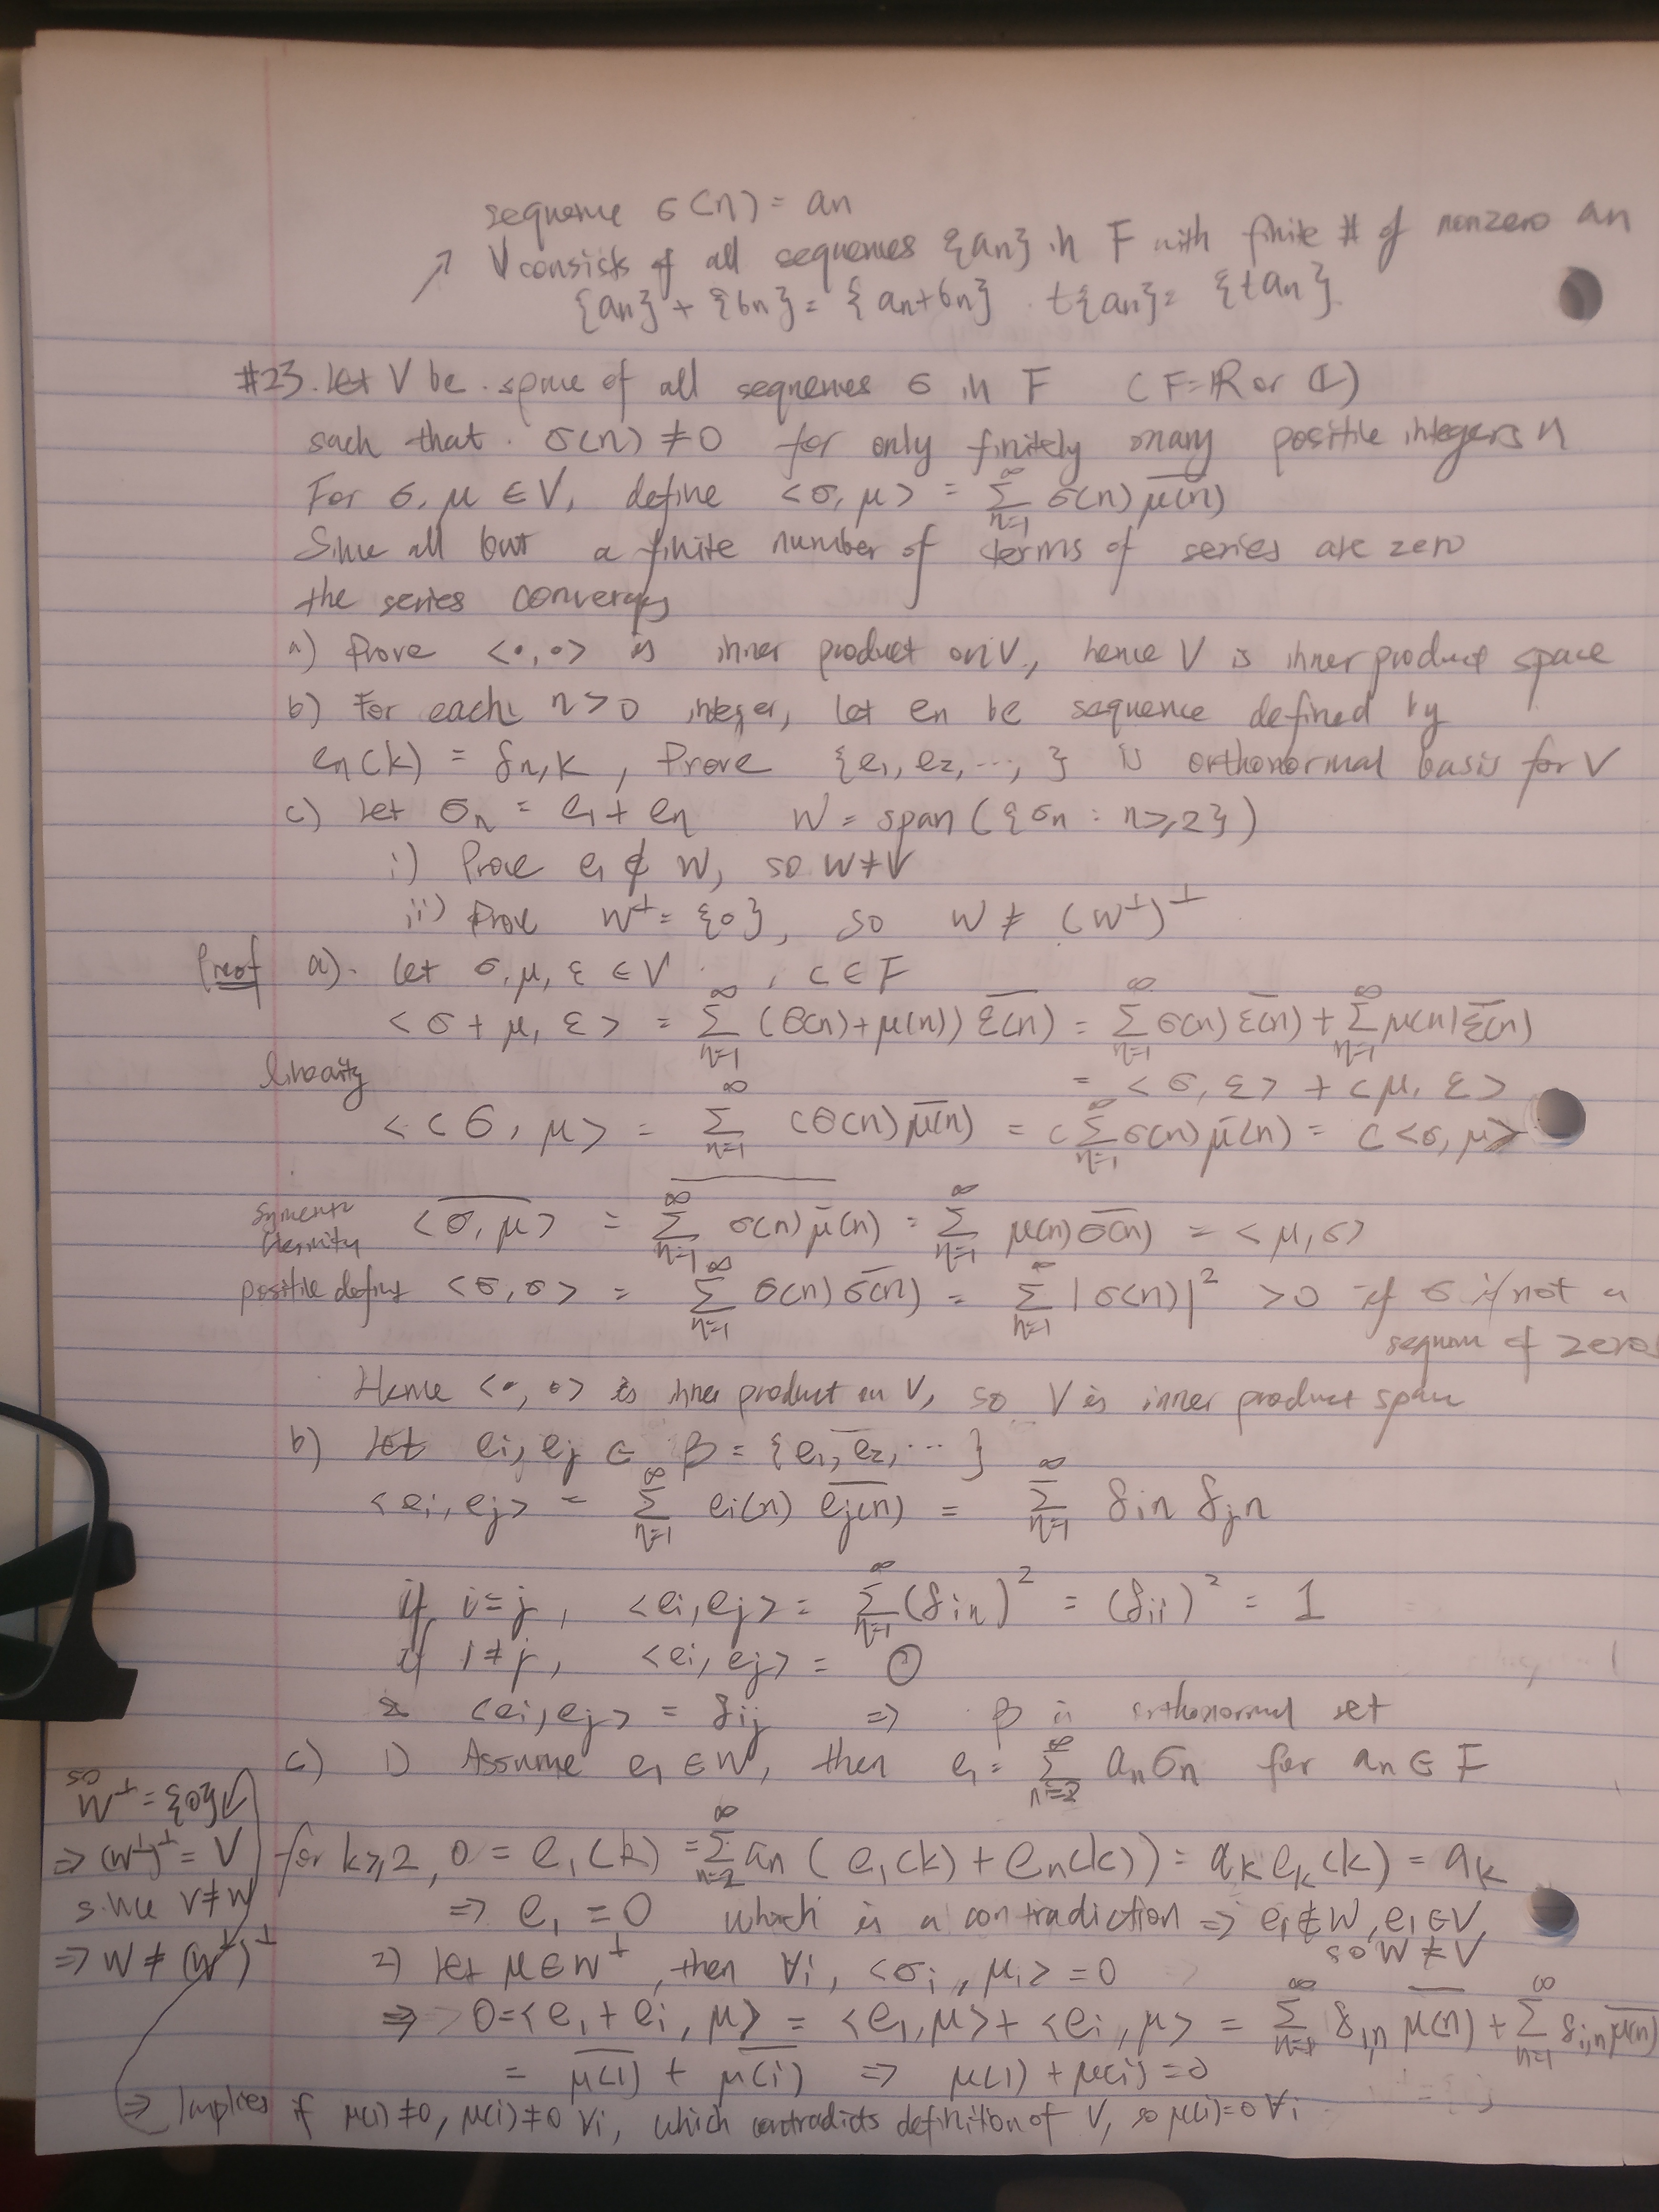 sequence σ(n) = an
↗ V consists of all sequences {an} in F with finite # of nonzero an
{an} + {bn} = {an+bn} . t{an} = {tan}.
#23. Let V be space of all sequences σ in F (F=ℝ or ℂ)
such that σ(n) ≠ 0 for only finitely many positive integers n
For σ, μ ∈ V, define <σ, μ> = ∑_{n=1}^∞ σ(n) \overline{μ(n)}
Since all but a finite number of terms of series are zero
the series converges
a) Prove <•,•> is inner product on V, hence V is inner product space
b) For each n>0 integer, let en be sequence defined by
en(k) = δn,k, Prove {e1, e2, ..., } is orthonormal basis for V
c) Let σn = e1 + en W = span({σn : n≥2})
i) Prove e1 ∉ W, so W≠V
ii) Prove W^⊥ = {0}, so W ≠ (W^⊥)^⊥
Proof a). Let σ, μ, ε ∈ V , c ∈ F
<σ + μ, ε> = ∑_{n=1}^∞ (σ(n)+μ(n)) \overline{ε(n)} = ∑_{n=1}^∞ σ(n)\overline{ε(n)} + ∑_{n=1}^∞ μ(n)\overline{ε(n)}
linearity = <σ, ε> + <μ, ε>
<cσ, μ> = ∑_{n=1}^∞ cσ(n)\overline{μ(n)} = c∑_{n=1}^∞ σ(n)\overline{μ}(n) = c<σ, μ>
\overline{<σ, μ>} = \overline{∑_{n=1}^∞ σ(n)\overline{μ}(n)} = ∑_{n=1}^∞ μ(n)\overline{σ(n)} = <μ, σ>
positive <σ, σ> = ∑_{n=1}^∞ σ(n)\overline{σ(n)} = ∑_{n=1}^∞ |σ(n)|² >0 if σ is not a
sequence of zeros
Hence <•,•> is inner product on V, so V is inner product space
b) Let ei, ej ∈ β = {e1, e2, ...}
<ei, ej> = ∑_{n=1}^∞ ei(n) \overline{ej(n)} = ∑_{n=1}^∞ δin δjn
if i=j, <ei, ej> = ∑_{n=1}^∞ (δin)² = (δii)² = 1
if i≠j, <ei, ej> = 0
so <ei, ej> = δij => β is orthonormal set
c) 1) Assume e1 ∈ W, then e1 = ∑_{n=2}^∞ anσn for an ∈ F
for k≥2, 0 = e1(k) = ∑_{n=2}^∞ an(e1(k) + en(k)) = ak ek(k) = ak
=> e1 = 0 which is a contradiction => e1∉W, e1∈V,
so W ≠ V
2) Let μ∈W^⊥, then ∀i, <σi, μi> = 0
=> 0=<e1 + ei, μ> = <e1, μ> + <ei, μ> = ∑_{n=1}^∞ δ1,n \overline{μ(n)} + ∑_{n=1}^∞ δi,n \overline{μ(n)}
= \overline{μ(1)} + \overline{μ(i)} => μ(1) + μ(i) = 0
=> Implies if μ(1) ≠0, μ(i) ≠0 ∀i, which contradicts definition of V, so μ(i)=0 ∀i
so
W^⊥ = {0}
=> (W^⊥)^⊥ = V
since V≠W
=> W ≠ (W^⊥)^⊥